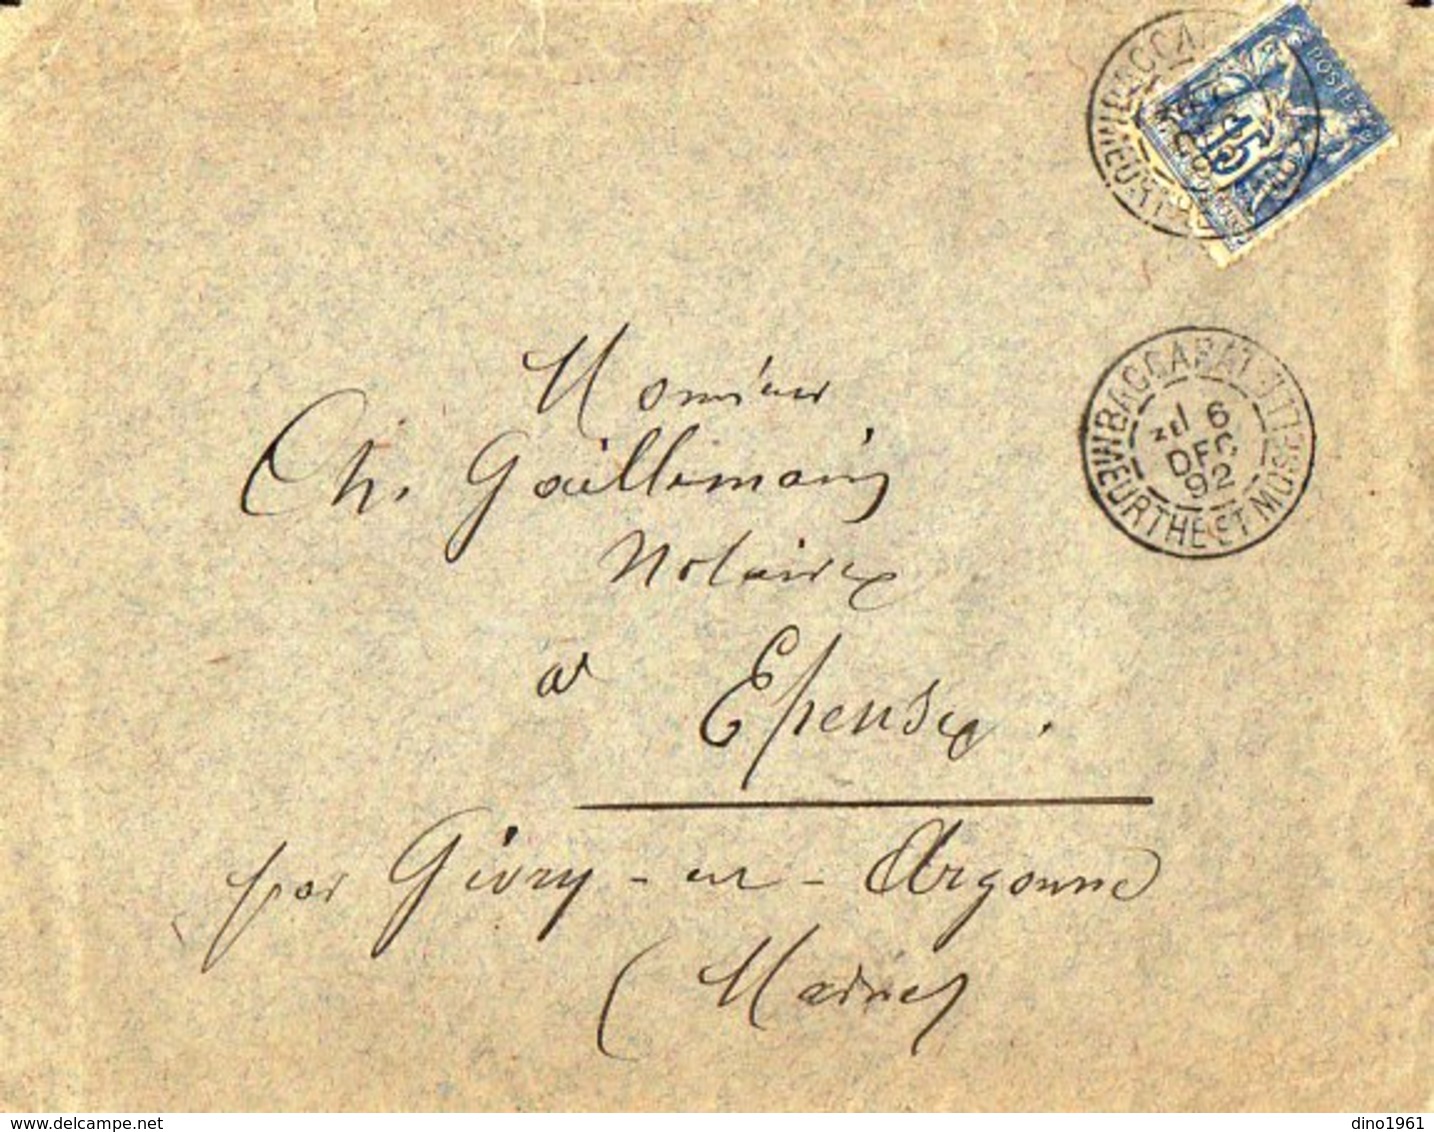 BACCARAT
15
POSTES
Monsieur
Ch. Gaillemain
Notaire
à Epense.
par Givry-en-Argonne
(Marne)
BACCARAT
6
DEC
92
MEURTHE ET MOSELLE
www.delcampe.net
dino1961